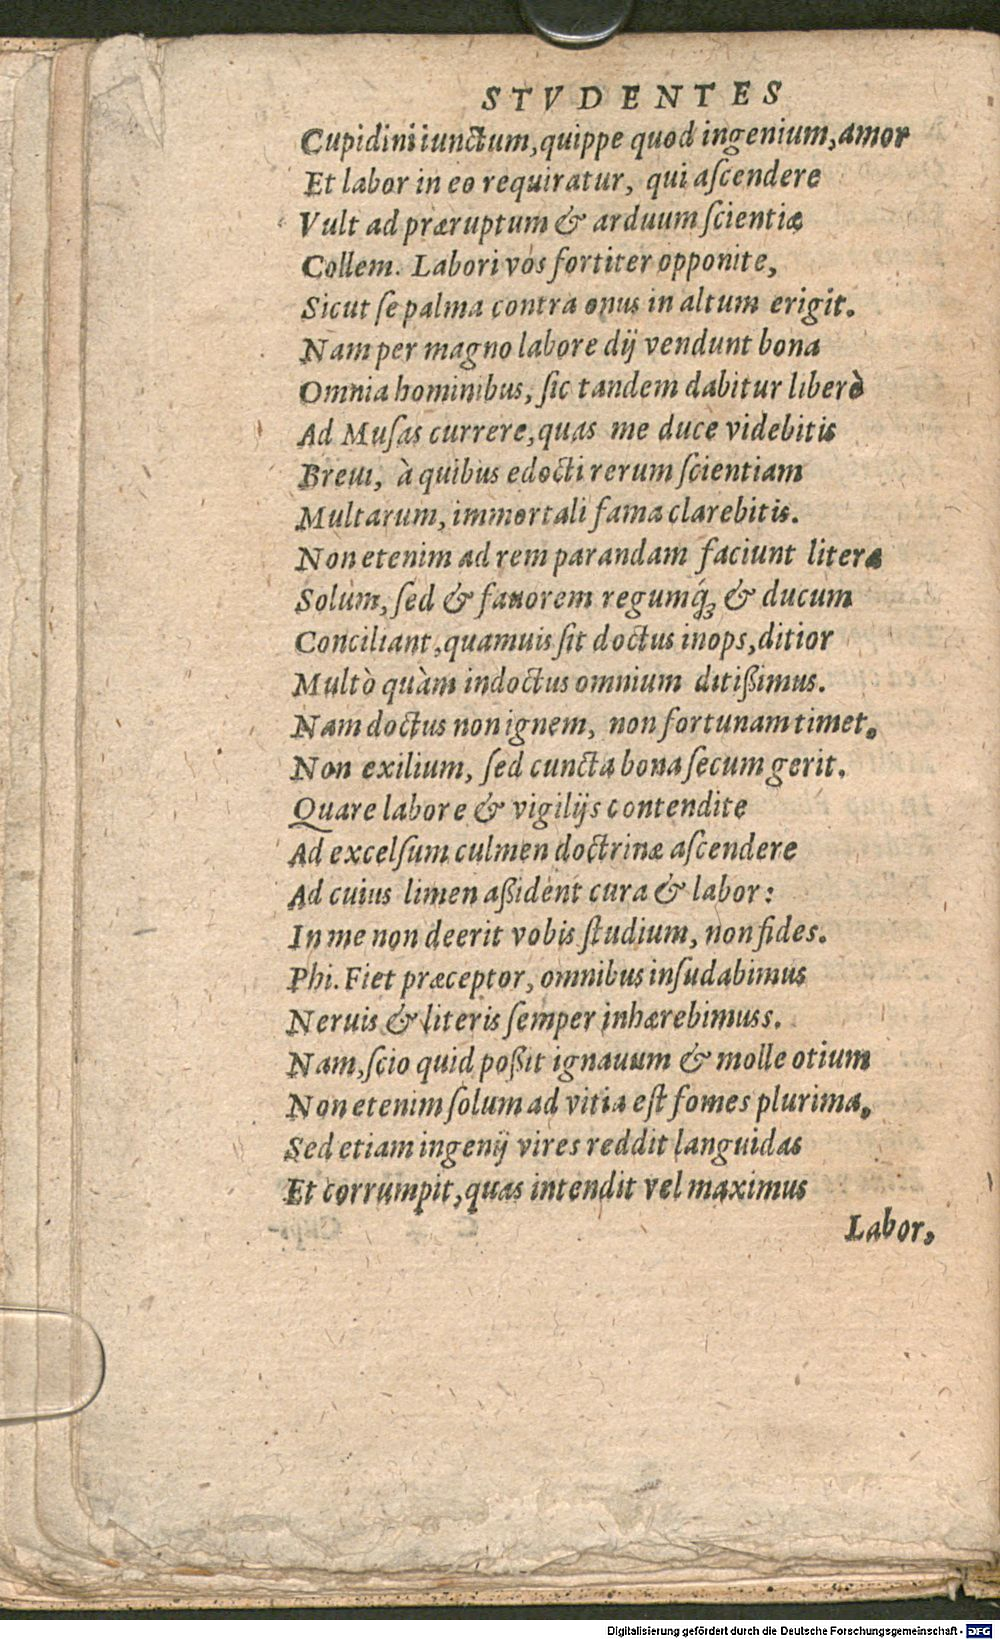 STVDENTES
Cupidini iunctum, quippe quod ingenium, amor
Et labor in eo requiratur, qui aſcendere
Vult ad præruptum & arduum ſcientiæ
Collem. Labori vos fortiter opponite,
Sicut ſe palma contra onus in altum erigit.
Nam per magno labore dij vendunt bona
Omnia hominibus, ſic tandem dabitur liberè
Ad Muſas currere, quas me duce videbitis
Breui, à quibus edocti rerum ſcientiam
Multarum, immortali fama clarebitis.
Non etenim ad rem parandam faciunt literæ
Solum, ſed & fauorem regumq́ꝫ & ducum
Conciliant, quamuis ſit doctus inops, ditior
Multò quàm indoctus omnium ditißimus.
Nam doctus non ignem, non fortunam timet,
Non exilium, ſed cuncta bona ſecum gerit.
Quare labore & vigilijs contendite
Ad excelſum culmen doctrinæ aſcendere
Ad cuius limen aßident cura & labor:
In me non deerit vobis ſtudium, non fides.
Phi. Fiet præceptor, omnibus inſudabimus
Neruis & literis ſemper inhærebimuss.
Nam, ſcio quid poßit ignauum & molle otium
Non etenim ſolum ad vitia eſt fomes plurima,
Sed etiam ingenij vires reddit languidas
Et corrumpit, quas intendit vel maximus
Labor,
Digitalisierung gefördert durch die Deutsche Forschungsgemeinschaft - DFG